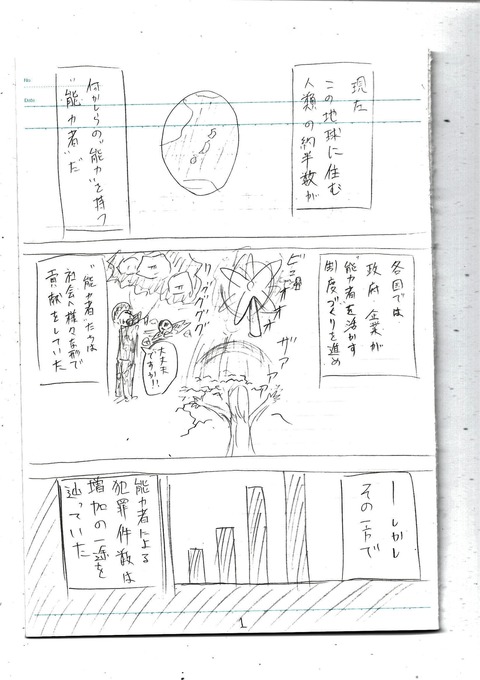 現在
この地球に住む
人類の約半数が
何かしらの"能力"を持つ
"能力者"だ
各国では
政府 企業が
能力者を活かす
制度づくりを進め
ビュオオオ
ザアアア
リグググググ
大丈夫
ですか!!
"能力者"たちは
社会へ様々な形で
貢献をしていた
―しかし
その一方で
能力者による
犯罪件数は
増加の一途を
辿っていた
1
No.
Date